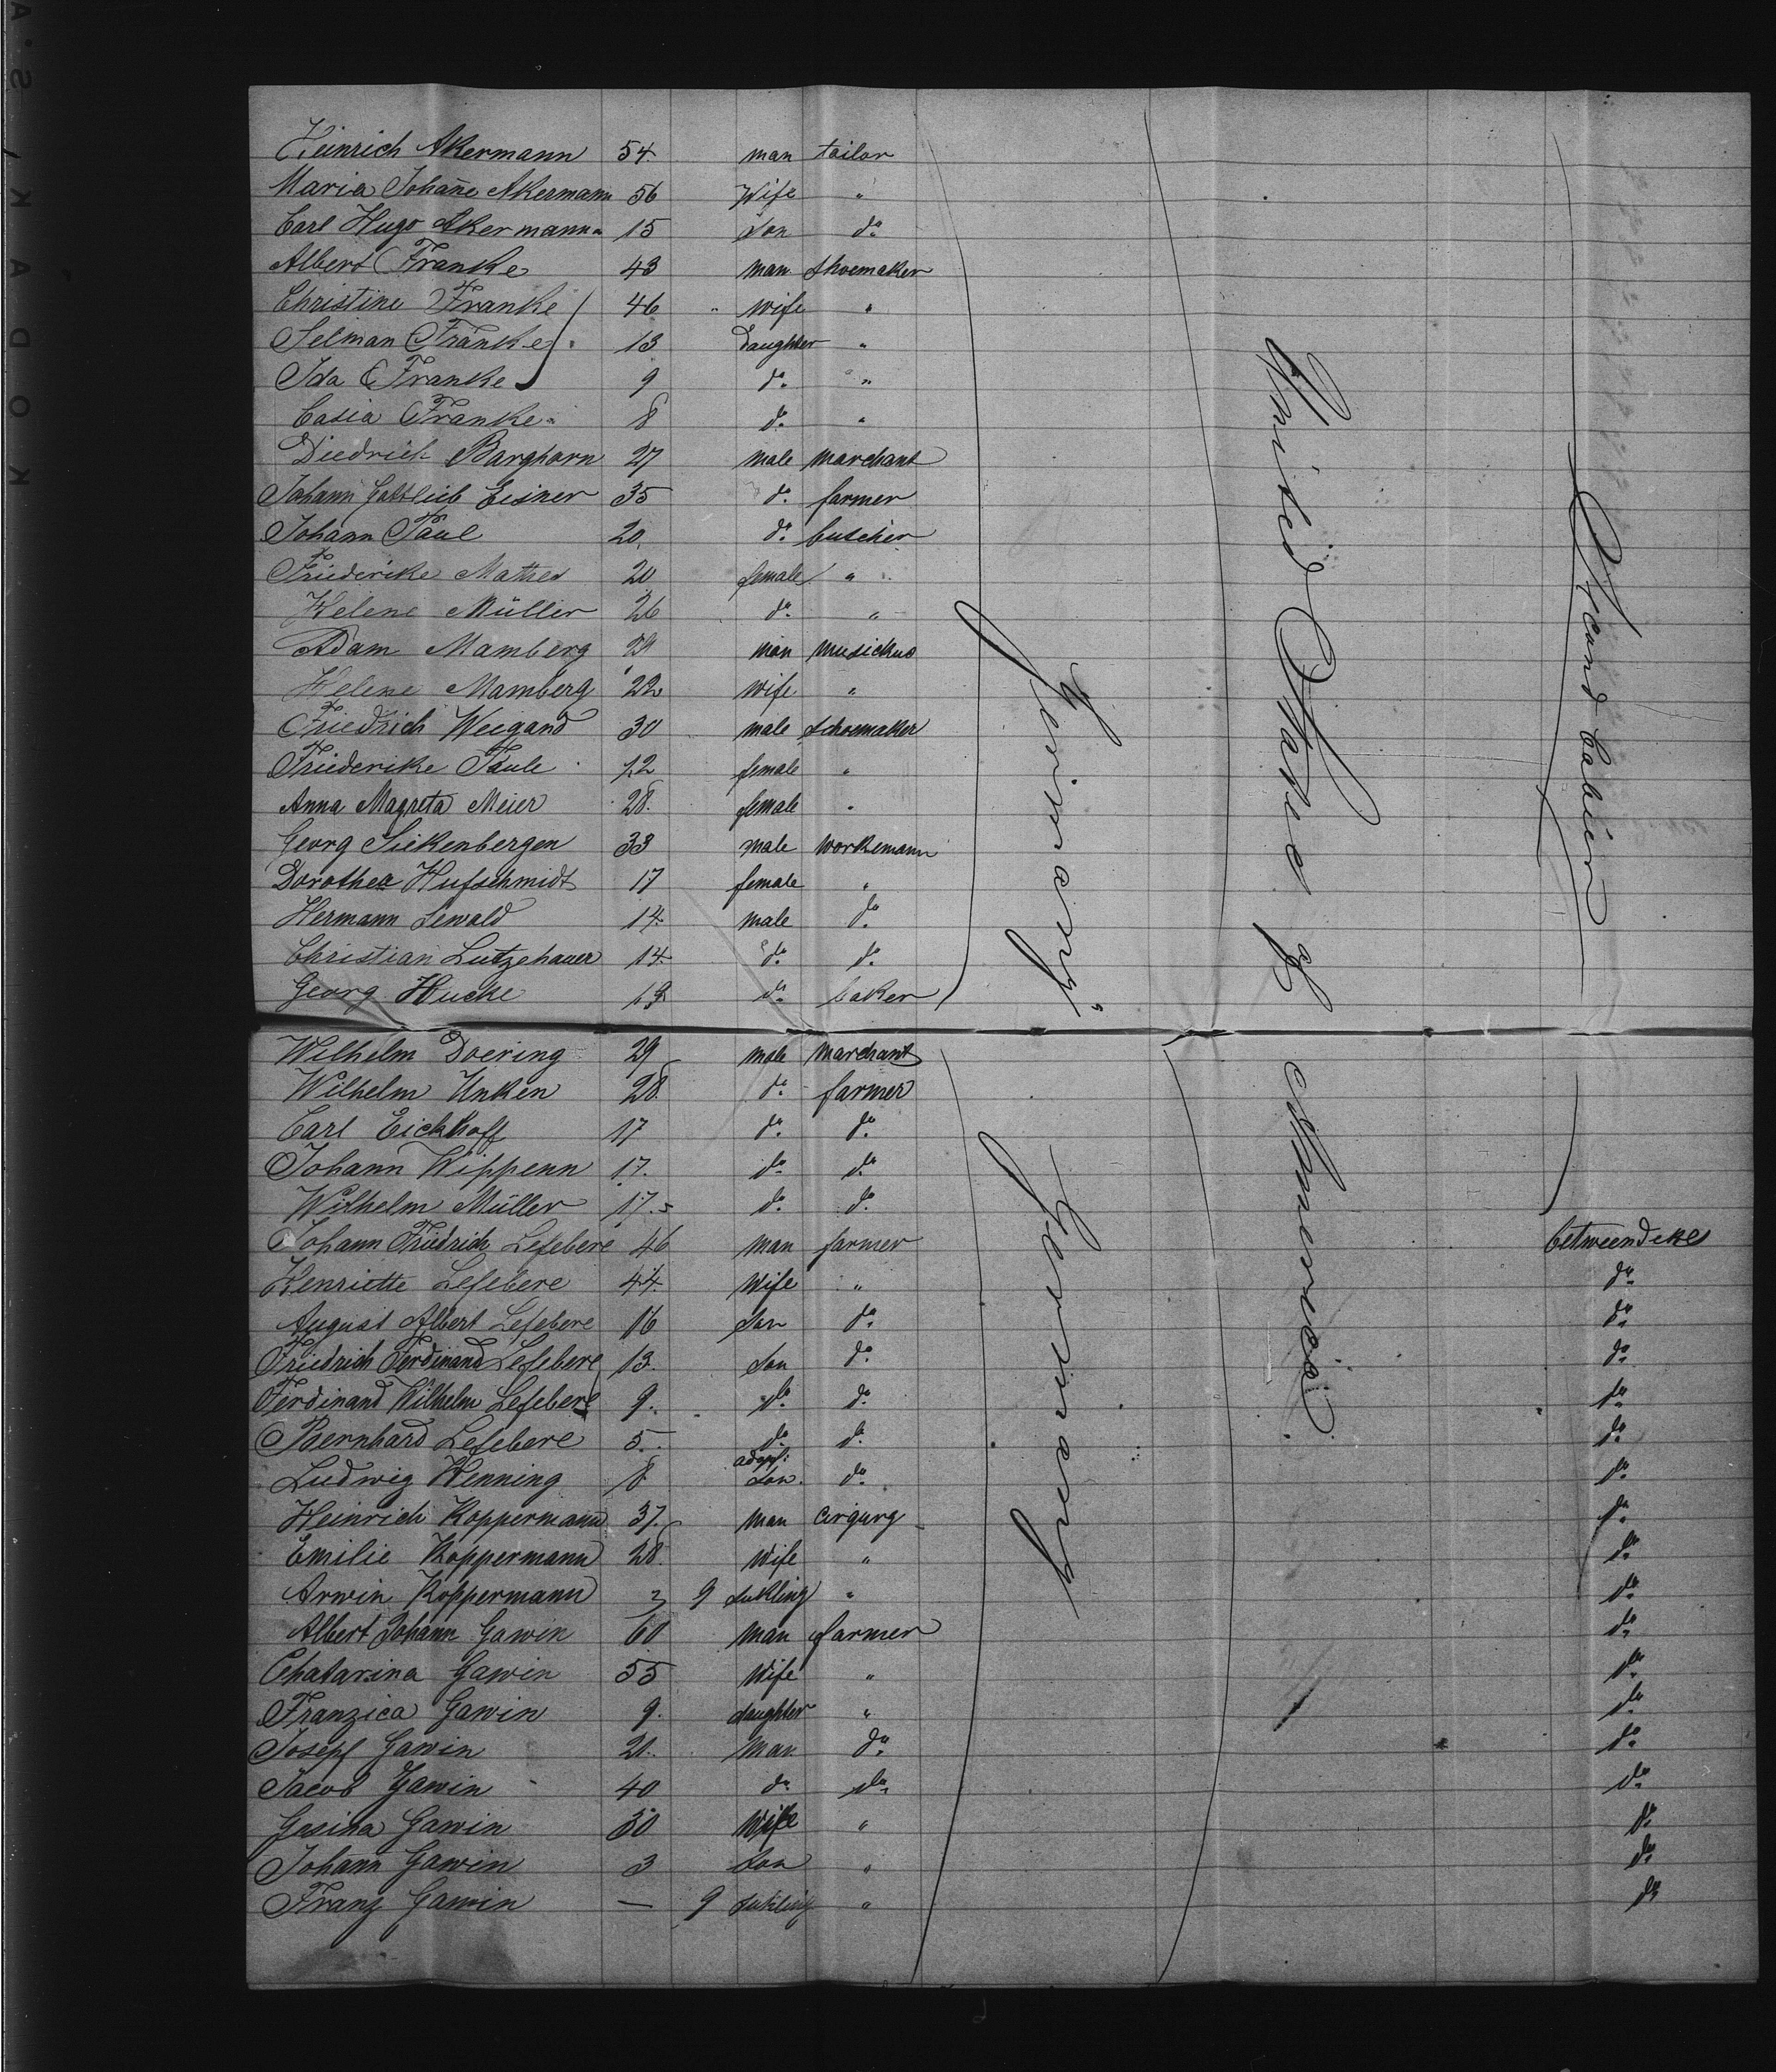 Heinrich Akermann 54. man tailor
Maria Johañe Akermann 56 Wife "
Carl Hugo Akermann 15 Son do.
Albert Franke 43 man shoemaker
Christine Franke 46 wife "
Selman Franke 13 Daughter "
Ida Franke 9 do. "
Casia Franke 8 do. "
Diedrich Barghorn 27 male marchant
Johann Gottlieb Eisner 35 do. farmer
Johann Paul 20. do. butcher
Friederike Mathes 20 female "
Helene Müller 26 do. "
Adam Mamberg man musickus
Helene Mamberg 22 wife "
Friedrich Weigand 30 male Schoemaker
Friederike Paule 22 female "
Anna Magreta Meier 28. female "
Georg Siekenbergen 33 male Workemann
Dorothea Hufschmidt 17 female "
Hermann Sewald 14. male do.
Christian Lutzehauer 14. do. do.
Georg Hucke 19 do. baker
Germany
United States of America
Second Cabin
Wilhelm Doering 29 male Marchant
Wilhelm Unken 28. do. farmer
Carl Eickhoff 17 do. do.
Johann Wippenn 17. do. do.
Wilhelm Müller 17. do. do.
Johann Friedrich Lefebere 46 man farmer betweendeks
Henriette Lefebere 44. Wife " do.
August Albert Lefebere 16 Son do. do.
Friedrich Ferdinand Lefebere 13. Son do. do.
Ferdinand Wilhelm Lefebere 9. do. do. do.
Bernhard Lefebere 5. do. do. do.
Ludwig Henning 8 adopt: Son. do. do.
Heinrich Koppermann 37. man Cirgurg do.
Emilie Koppermann 28. Wife " do.
Arwin Koppermann 9 Sukling " do.
Albert Johann Gawin 60 man farmer do.
Chatarina Gawin 55 Wife " do.
Franzica Gawin 9. daughter " do.
Josepf Gawin 21. Man do. do.
Jacob Gawin 40 do. do. do.
Gasina Gawin 30 Wife " do.
Johann Gawin 3 Son " do.
Franz Gawin — 9 Sukling " do.
Germany
KODAK